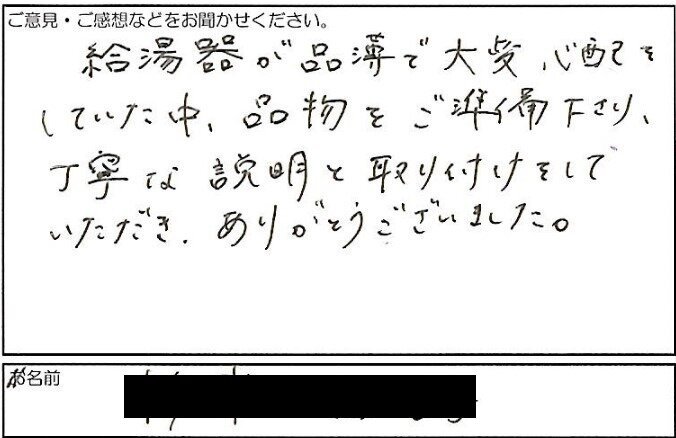 ご意見・ご感想などをお聞かせください。
給湯器が品薄で大変、心配を
していた中、品物をご準備下さり、
丁寧な説明と取り付けをして
いただき、ありがとうございました。
お名前